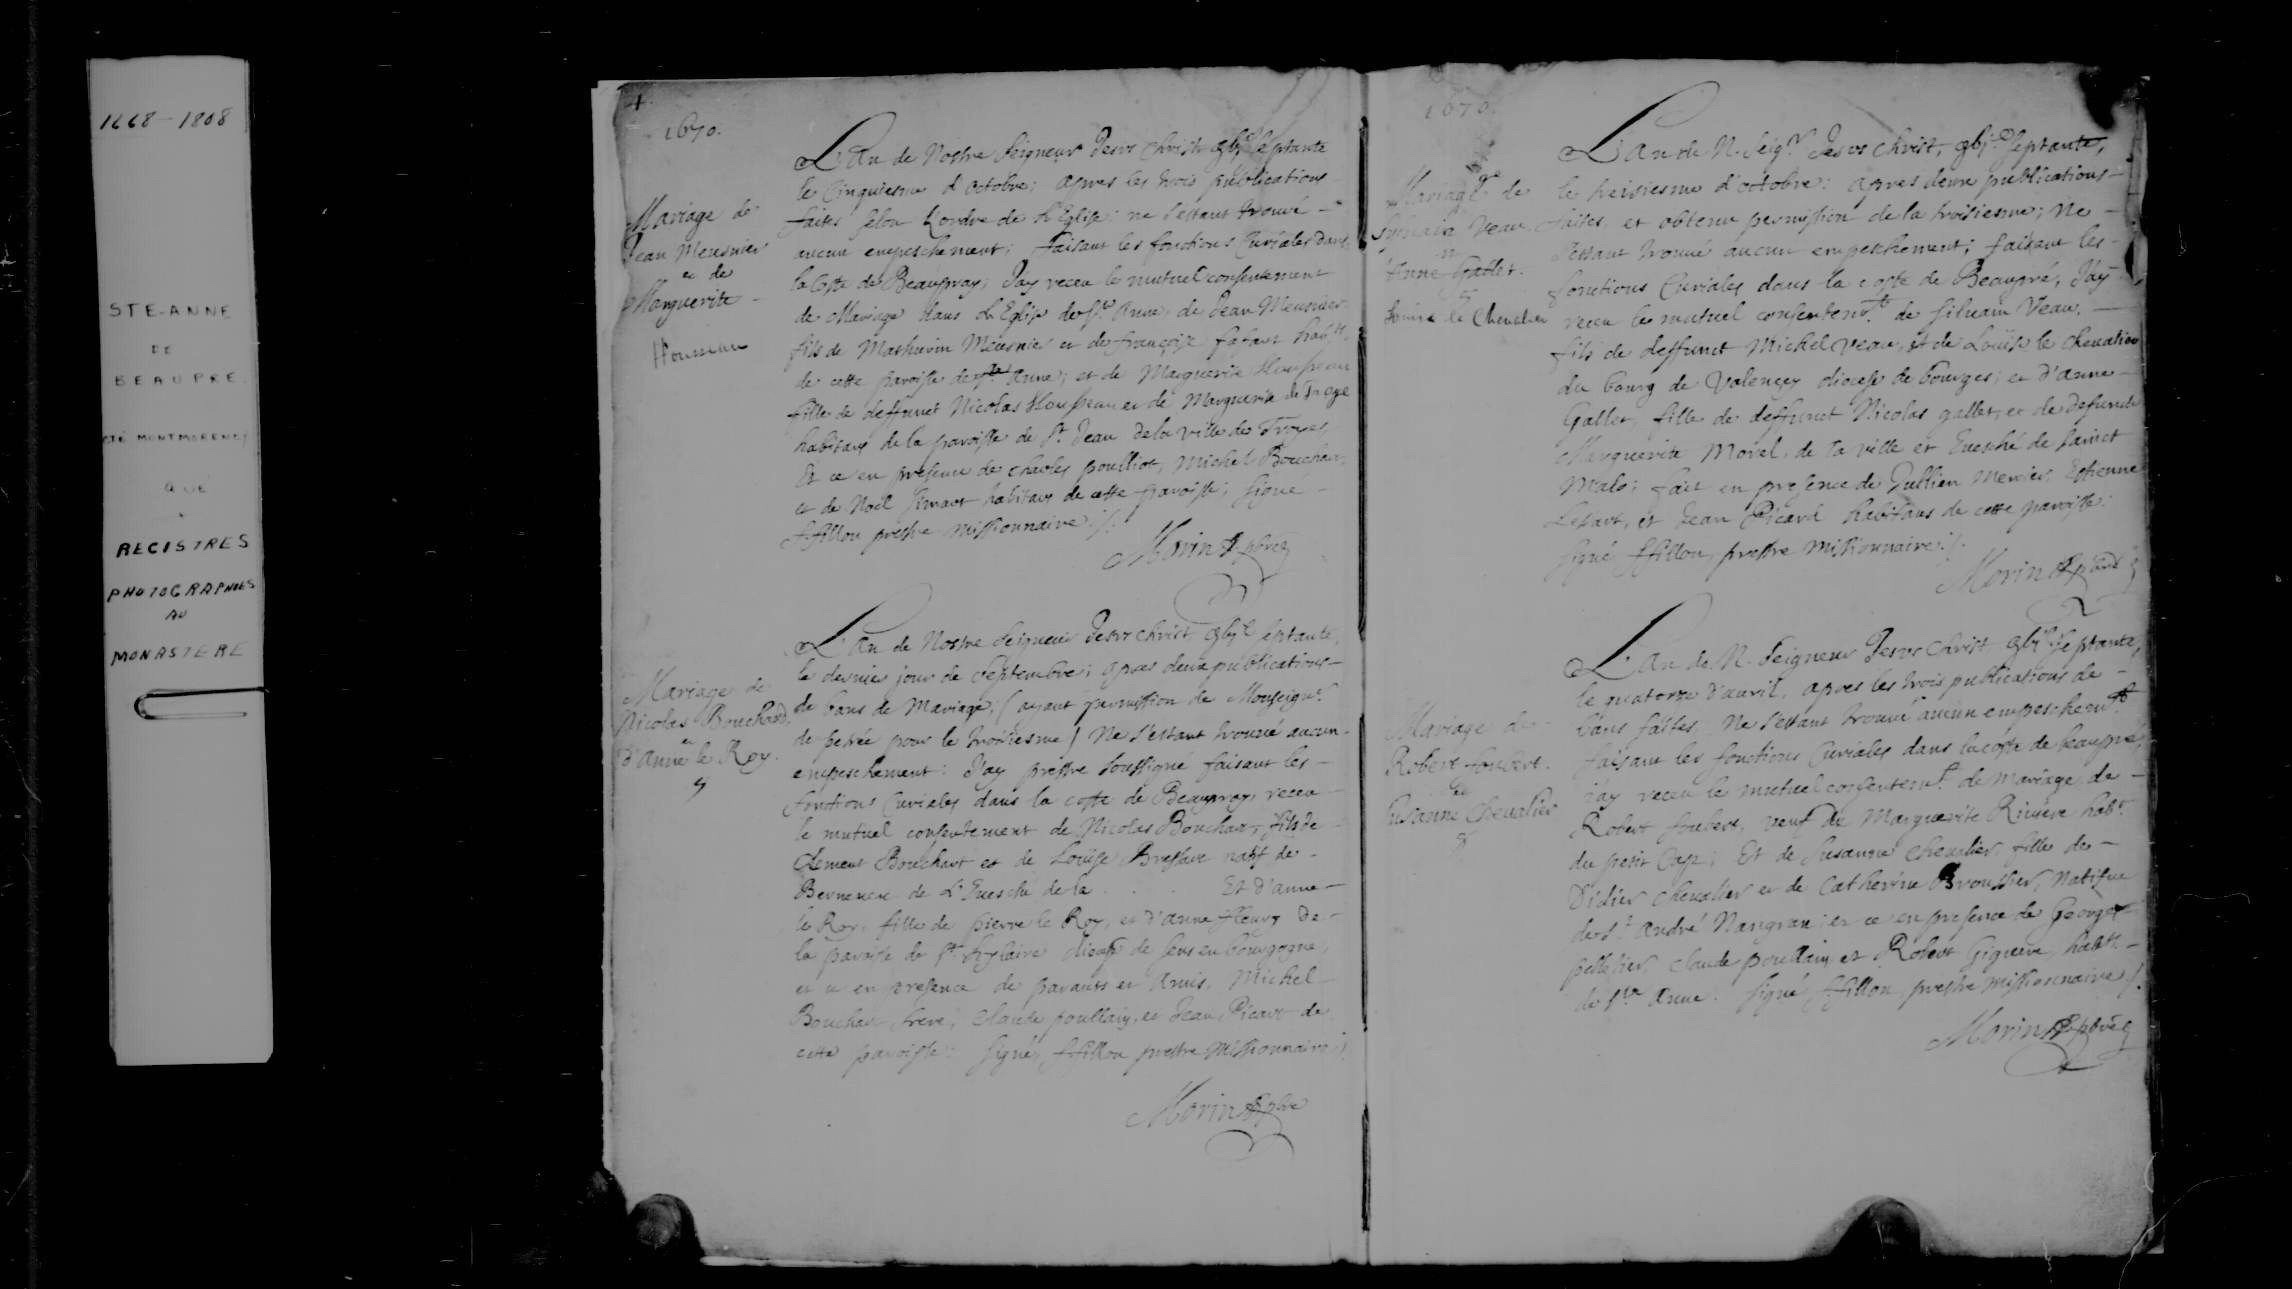 1668-1808
STE-ANNE
DE
BEAUPRE
CTÉ MONTMORENCY
QUE
REGISTRES
PHOTOGRAPHIES
AU
MONASTERE
1670.
Mariage de
Jean Meusnier
et de
Marguerite
L'An de Nostre Seigneur Jesus Christ septante
le Cinquiesme d'octobre; apres les trois publications
faites selon l'ordre de l'Eglise; ne s'estant trouvé
aucun empeschement; faisant les fonctions Curiales dans
la Coste de Beaupray; J'ay receu le mutuel consentement
de Mariage dans l'Eglise de Ste Anne, de Jean Meusnier
fils de Mathurin Meusnier et de françoise fafart habtt.
de cette paroisse de Ste Anne; et de Marguerite
fille de deffunct Nicolas et de Marguerite
habitans de la paroisse de St Jean de la ville de Troyes
Et ce en presence de Charles poulliot, Michel Bouchart
et de Noël habitans de cette paroisse; signé
f. fillon prestre missionnaire ./.
Morin pbre
Mariage de
Nicolas Bouchard
et
d'Anne le Roy.
L'An de Nostre Seigneur Jesus Christ septante
le dernier jour de Septembre; apres deux publications
de bans de Mariage, (ayant permission de Monseignr
de petrée pour le troisiesme) Ne s'estant trouvé aucun
empeschement: J'ay prestre soussigné faisant les
fonctions Curiales dans la coste de Beaupray, receu
le mutuel consentement de Nicolas Bouchart, fils de
Clement Bouchart et de Louise natif de
de L'Evesché de la . . . Et d'anne
le Roy, fille de pierre le Roy, et d'anne fleury de
la paroisse de St hylaire diocese de sens en bourgogne,
et ce en presence de parants et Amis, Michel
Bouchart frere, Claude poullain, et Jean Picart de
cette paroisse: signé f. fillon prestre Missionnaire ./.
Morin pbre
1670.
Mariage de
Silvain Veau
et
Anne Gallet.
Louise le Chevalier
L'An de N. Seigr Jesus Christ, septante,
le treisiesme d'octobre: apres deux publications
faites, et obtenu permission de la troisiesme; Ne
s'estant trouvé aucun empeschement; faisant les
fonctions Curiales dans la coste de Beaupré, J'ay
receu le mutuel consentemt de silvain Veau,
fils de deffunct Michel Veau, et de Louïse le Chevalier
du bourg de Valençey diocese de bourges; et d'anne
Gallet, fille de deffunct Nicolas gallet, et de defuncte
Marguerite Morel, de la ville et Evesché de sainct
Malo; fait en presence de Jullien Mercier, Estienne
Lessart, et Jean Picard habitans de cette paroisse.
signé f. fillon, prestre missionnaire ./.
Morin pbre
Mariage de
Robert foubert.
et
Susanne Chevalier
L'An de N. Seigneur Jesus Christ septante,
le quatorze d'avril, apres les trois publications de
bans faites, Ne s'estant trouvé aucun empeschemt
faisant les fonctions Curiales dans la coste de beaupré,
J'ay receu le mutuel consentemt de mariage de
Robert foubert, veuf de Marguerite Riviere habt.
du petit Cap; Et de Susanne chevalier, fille de
Didier chevalier et de Catherine Natifve
de St André et ce en presence de George
pelletier, Claude poullain, et Robert Giguere, habtt.
de Ste Anne. signé f. fillon, prestre missionnaire ./.
Morin pbre